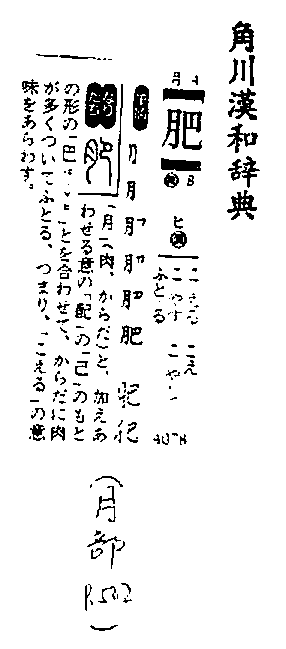 角川漢和辞典
月4
肥
B
ヒ漢
こえる こえ
こやす こやし
ふとる
4078
筆順
月 肥 肥
なりたち
「月」(肉、からだ)と、加えあ
わせる意の「配」の「己」のもと
の形の「巴」とを合わせて、からだに肉
が多くついてふとる、つまり、「こえる」の意
味をあらわす。
(月部
P.502
)